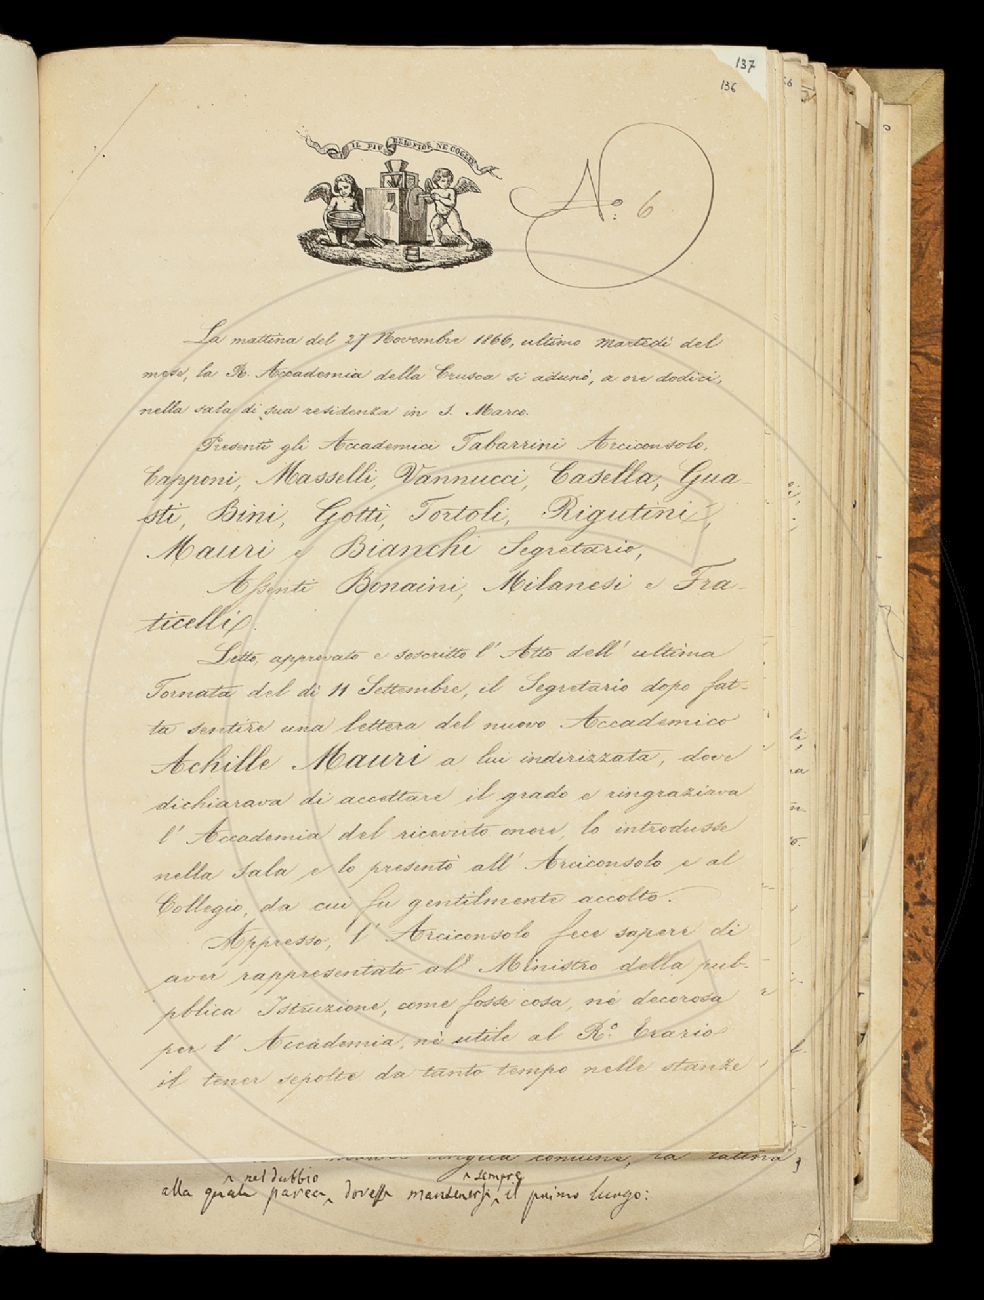 137
136
IL PIÙ BEL FIOR NE COGLIE
N.º 6
La mattina del 27 Novembre 1866, ultimo martedì del
mese, la R. Accademia della Crusca si adunò, a ore dodici,
nella sala di sua residenza in S. Marco.
Presenti gli Accademici Tabarrini Arciconsolo,
Capponi, Masselli, Vannucci, Casella, Gua-
sti, Bini, Gotti, Tortoli, Rigutini,
Mauri e Bianchi Segretario,
Assenti Bonaini, Milanesi e Fra-
ticelli.
Letto, approvato e soscritto l' Atto dell' ultima
Tornata del dì 11 Settembre, il Segretario dopo fat-
ta sentire una lettera del nuovo Accademico
Achille Mauri a lui indirizzata, dove
dichiarava di accettare il grado e ringraziava
l' Accademia del ricevuto onore, lo introdusse
nella sala e lo presentò all' Arciconsolo e al
Collegio, da cui fu gentilmente accolto.
Appresso, l' Arciconsolo fece sapere di
aver rappresentato al Ministro della pub-
pblica Istruzione, come fosse cosa, nè decorosa
per l' Accademia, nè utile al R.º Erario
il tener sepolte da tanto tempo nelle stanze
lingua comune, la latina
nel dubbio sempre
alla quale parea dovesse mantenersi il primo luogo: